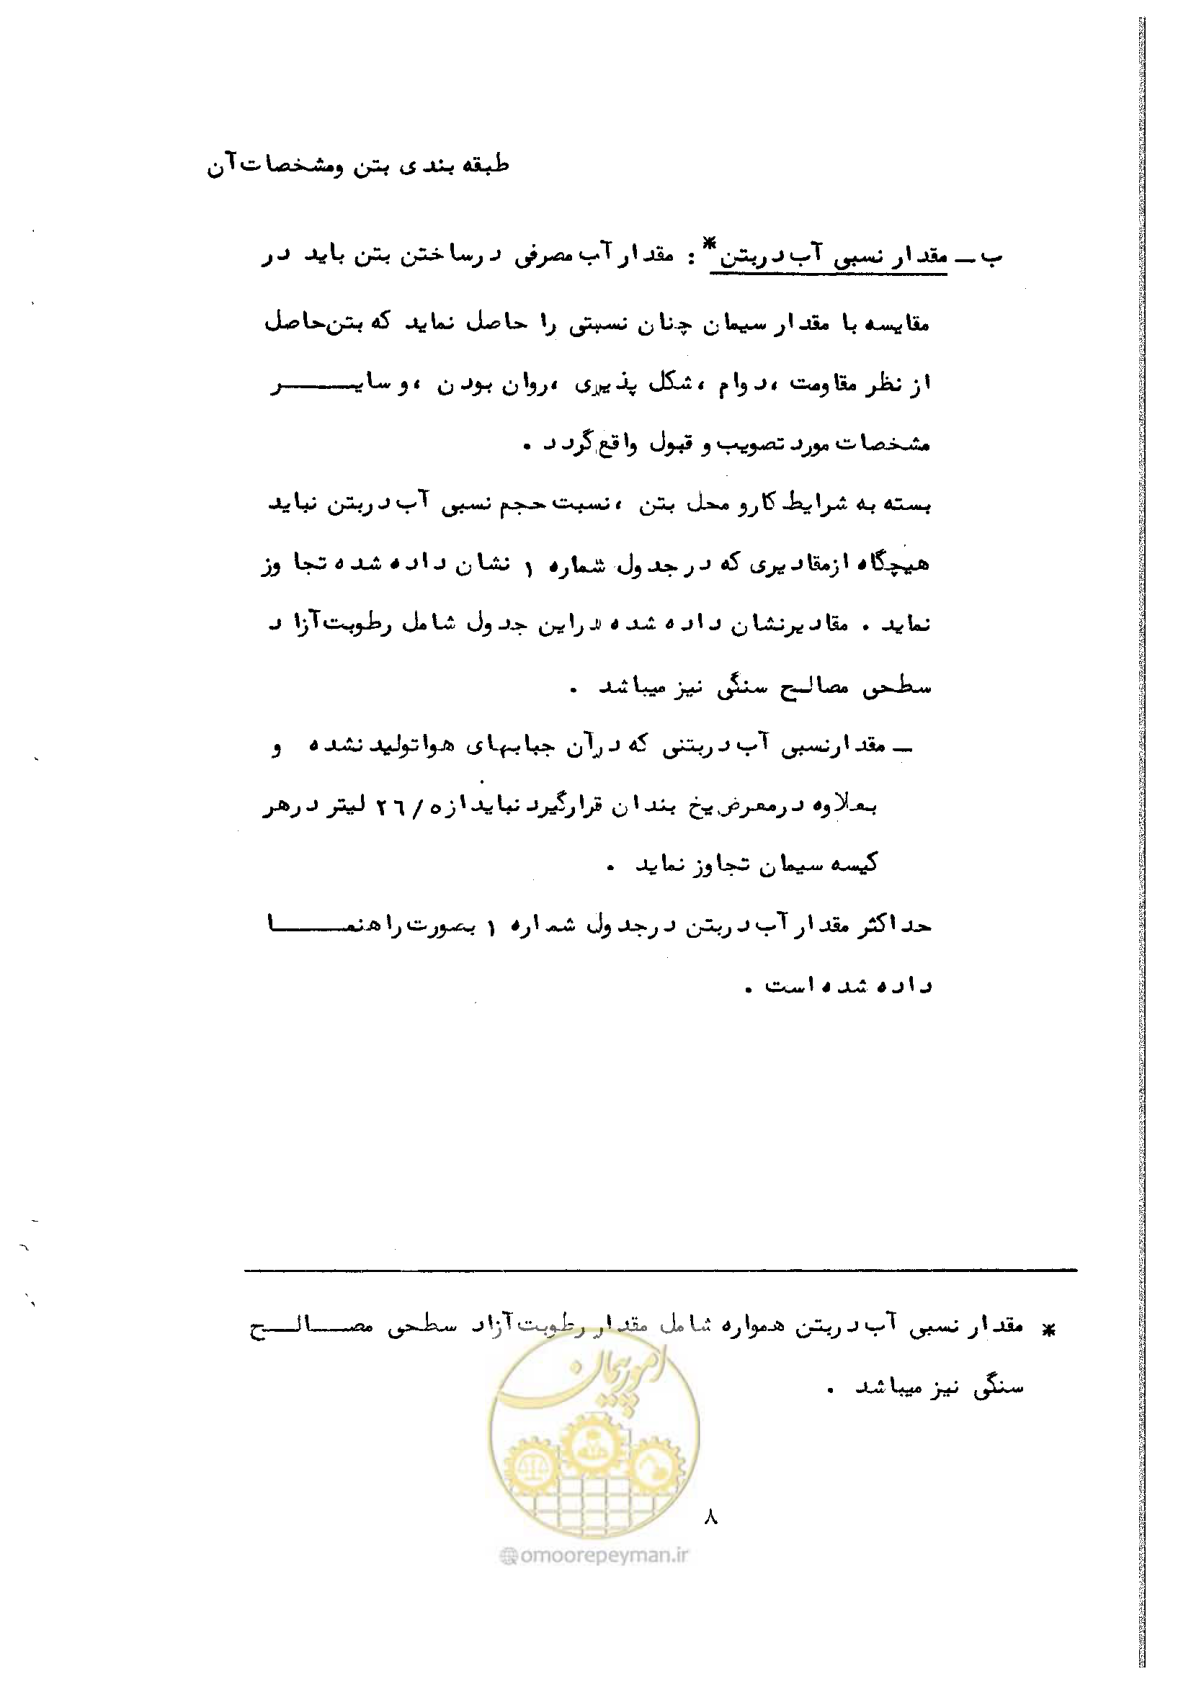 طبقه بندی بتن ومشخصات آن
ب ـ مقدار نسبی آب دربتن* : مقدار آب مصرفی درساختن بتن باید در
مقایسه با مقدار سیمان چنان نسبتی را حاصل نماید که بتن حاصل
از نظر مقاومت ، دوام ، شکل پذیری ، روان بودن ، و سایـــــر
مشخصات مورد تصویب و قبول واقع گردد .
بسته به شرایط کارو محل بتن ، نسبت حجم نسبی آب دربتن نباید
هیچگاه ازمقادیری که درجدول شماره ۱ نشان داده شده تجاوز
نماید . مقادیرنشان داده شده دراین جدول شامل رطوبت آزاد
سطحی مصالح سنگی نیز میباشد .
ـ مقدارنسبی آب دربتنی که درآن جبابهای هواتولیدنشده و
بعلاوه درمعرض یخ بندان قرارگیرد نباید از ۲۶/۵ لیتر درهر
کیسه سیمان تجاوز نماید .
حداکثر مقدار آب دربتن درجدول شماره ۱ بصورت راهنمـــــا
داده شده است .
* مقدار نسبی آب دربتن همواره شامل مقدار رطوبت آزاد سطحی مصـــالـــح
سنگی نیز میباشد .
امور پیمان
۸
@omoorepeyman.ir